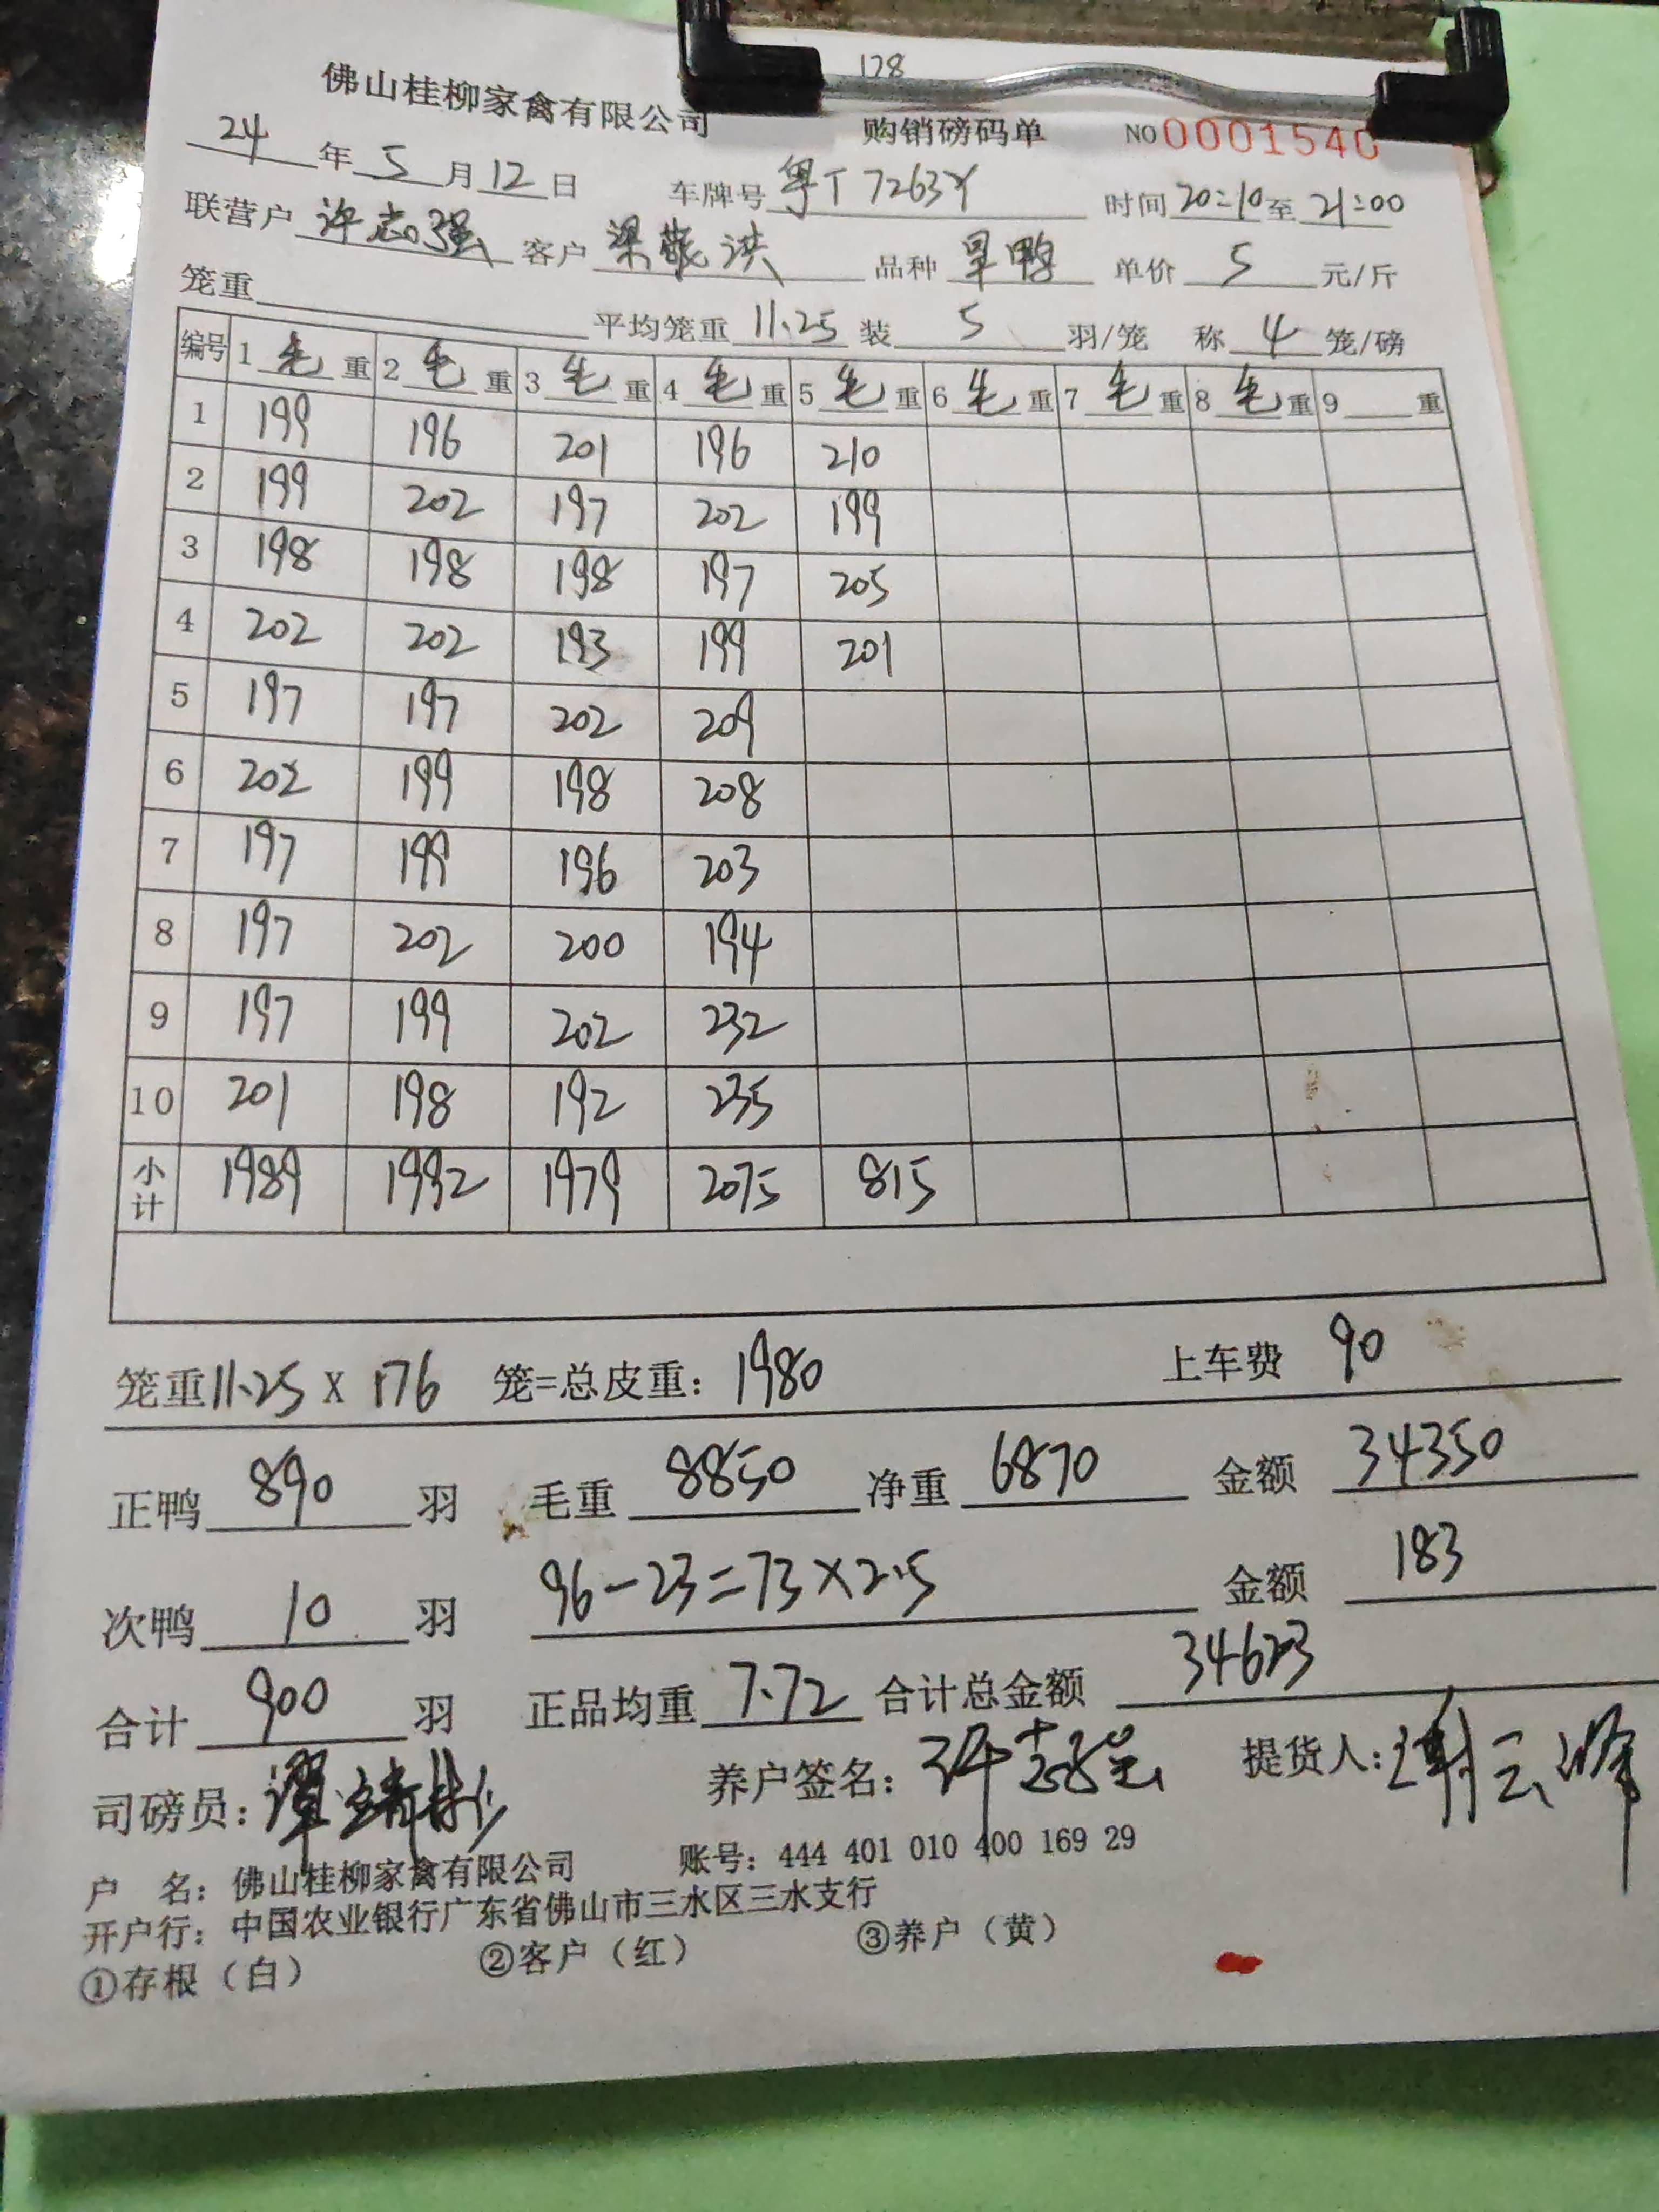 128
佛山桂柳家禽有限公司 购销磅码单 NO 0001540
24年5月12日 车牌号 粤T7263Y 时间 20:10 至 21:00
联营户 许志强 客户 梁 洪 品种 旱鸭 单价 5 元/斤
笼重 平均笼重 11.25 装 5 羽/笼 称 4 笼/磅
编号 1毛重 2毛重 3毛重 4毛重 5毛重 6毛重 7毛重 8毛重 9 重
1 199 196 201 196 210
2 199 202 197 202 199
3 198 198 198 197 205
4 202 202 193 199 201
5 197 197 202 209
6 202 199 198 208
7 197 199 196 203
8 197 202 200 194
9 197 199 202 232
10 201 198 192 235
小计 1989 1992 1979 2075 815
笼重 11.25 X 176 笼=总皮重: 1980 上车费 90
正鸭 890 羽 毛重 8850 净重 6870 金额 34350
次鸭 10 羽 96-23=73×2.5 金额 183
合计 900 羽 正品均重 7.72 合计总金额 34623
司磅员: 养户签名: 许志强 提货人: 谢云峰
户 名: 佛山桂柳家禽有限公司 账号: 444 401 010 400 169 29
开户行: 中国农业银行广东省佛山市三水区三水支行
①存根（白） ②客户（红） ③养户（黄）